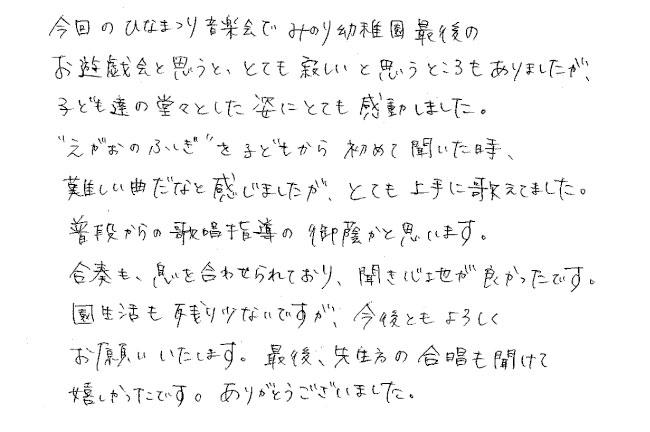 今回のひなまつり音楽会でみのり幼稚園最後の
お遊戯会と思うと、とても寂しいと思うところもありましたが、
子ども達の堂々とした姿にとても感動しました。
"えがおのふしぎ"を子どもから初めて聞いた時、
難しい曲だなと感じましたが、とても上手に歌えてました。
普段からの歌唱指導の御蔭かと思います。
合奏も、息を合わせられており、聞き心地が良かったです。
園生活も残り少ないですが、今後ともよろしく
お願いいたします。最後、先生方の合唱も聞けて
嬉しかったです。ありがとうございました。